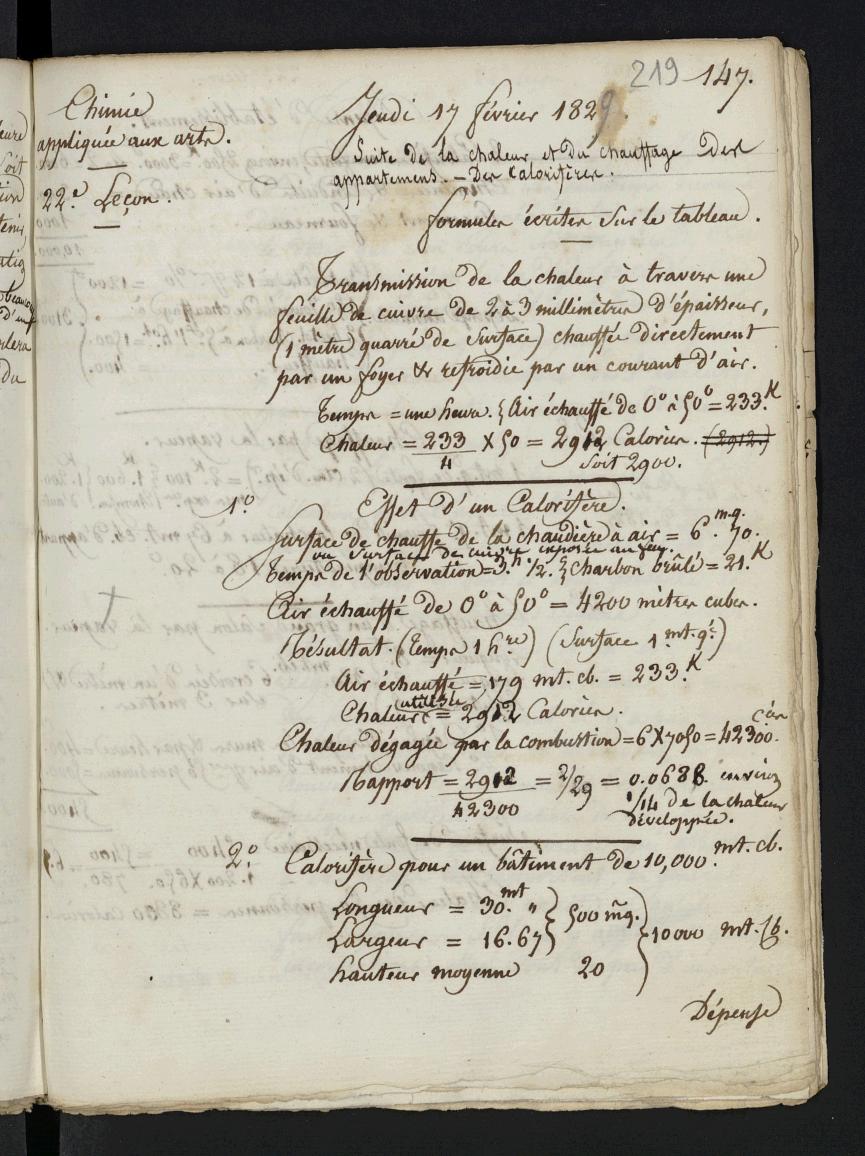 219 147.
Chimie
appliquée aux arts.
22.e Leçon.
Jeudi 17 février 1829.
Suite de la chaleur et du chauffage des
appartemens. – Des Calorifères.
formules écrites sur le tableau.
Transmission de la chaleur à travers une
feuille de cuivre de 2 à 3 millimètres d'épaisseur,
(1 mètre quarré de surface) chauffée directement
par un foyer & refroidie par un courant d'air.
Temps = une heure. { Air échauffé de 0° à 50° = 233.K
Chaleur = 233/4 X 50 = 2912 Calories. (2912.)
soit 2900.
1.o Effet d'un Calorifère.
Surface de chauffe de la chaudière à air = 6.m.q. 70.
ou surface de cuivre exposée au feu.
Temps de l'observation = 3.h 1/2. { Charbon brûlé = 21.K
Air échauffé de 0° à 50° = 4200 mètres cubes.
Résultat. (Temps 1 hre) (Surface 1.mt.qé)
Air échauffé = 179 mt. cb. = 233.K
utilisée
Chaleur = 2912 Calories.
Chaleur dégagée par la combustion = 6 X 7050 = 42300.
Rapport = 2912/42300 = 2/29 = 0.0688 environ
1/14 de la chaleur
développée.
2.o Calorifère pour un bâtiment de 10,000.mt. cb.
Longueur = 30.mt "
Largeur = 16.67 } 500 mq.
hauteur moyenne 20 } 10000 mt. cb.
Dépense